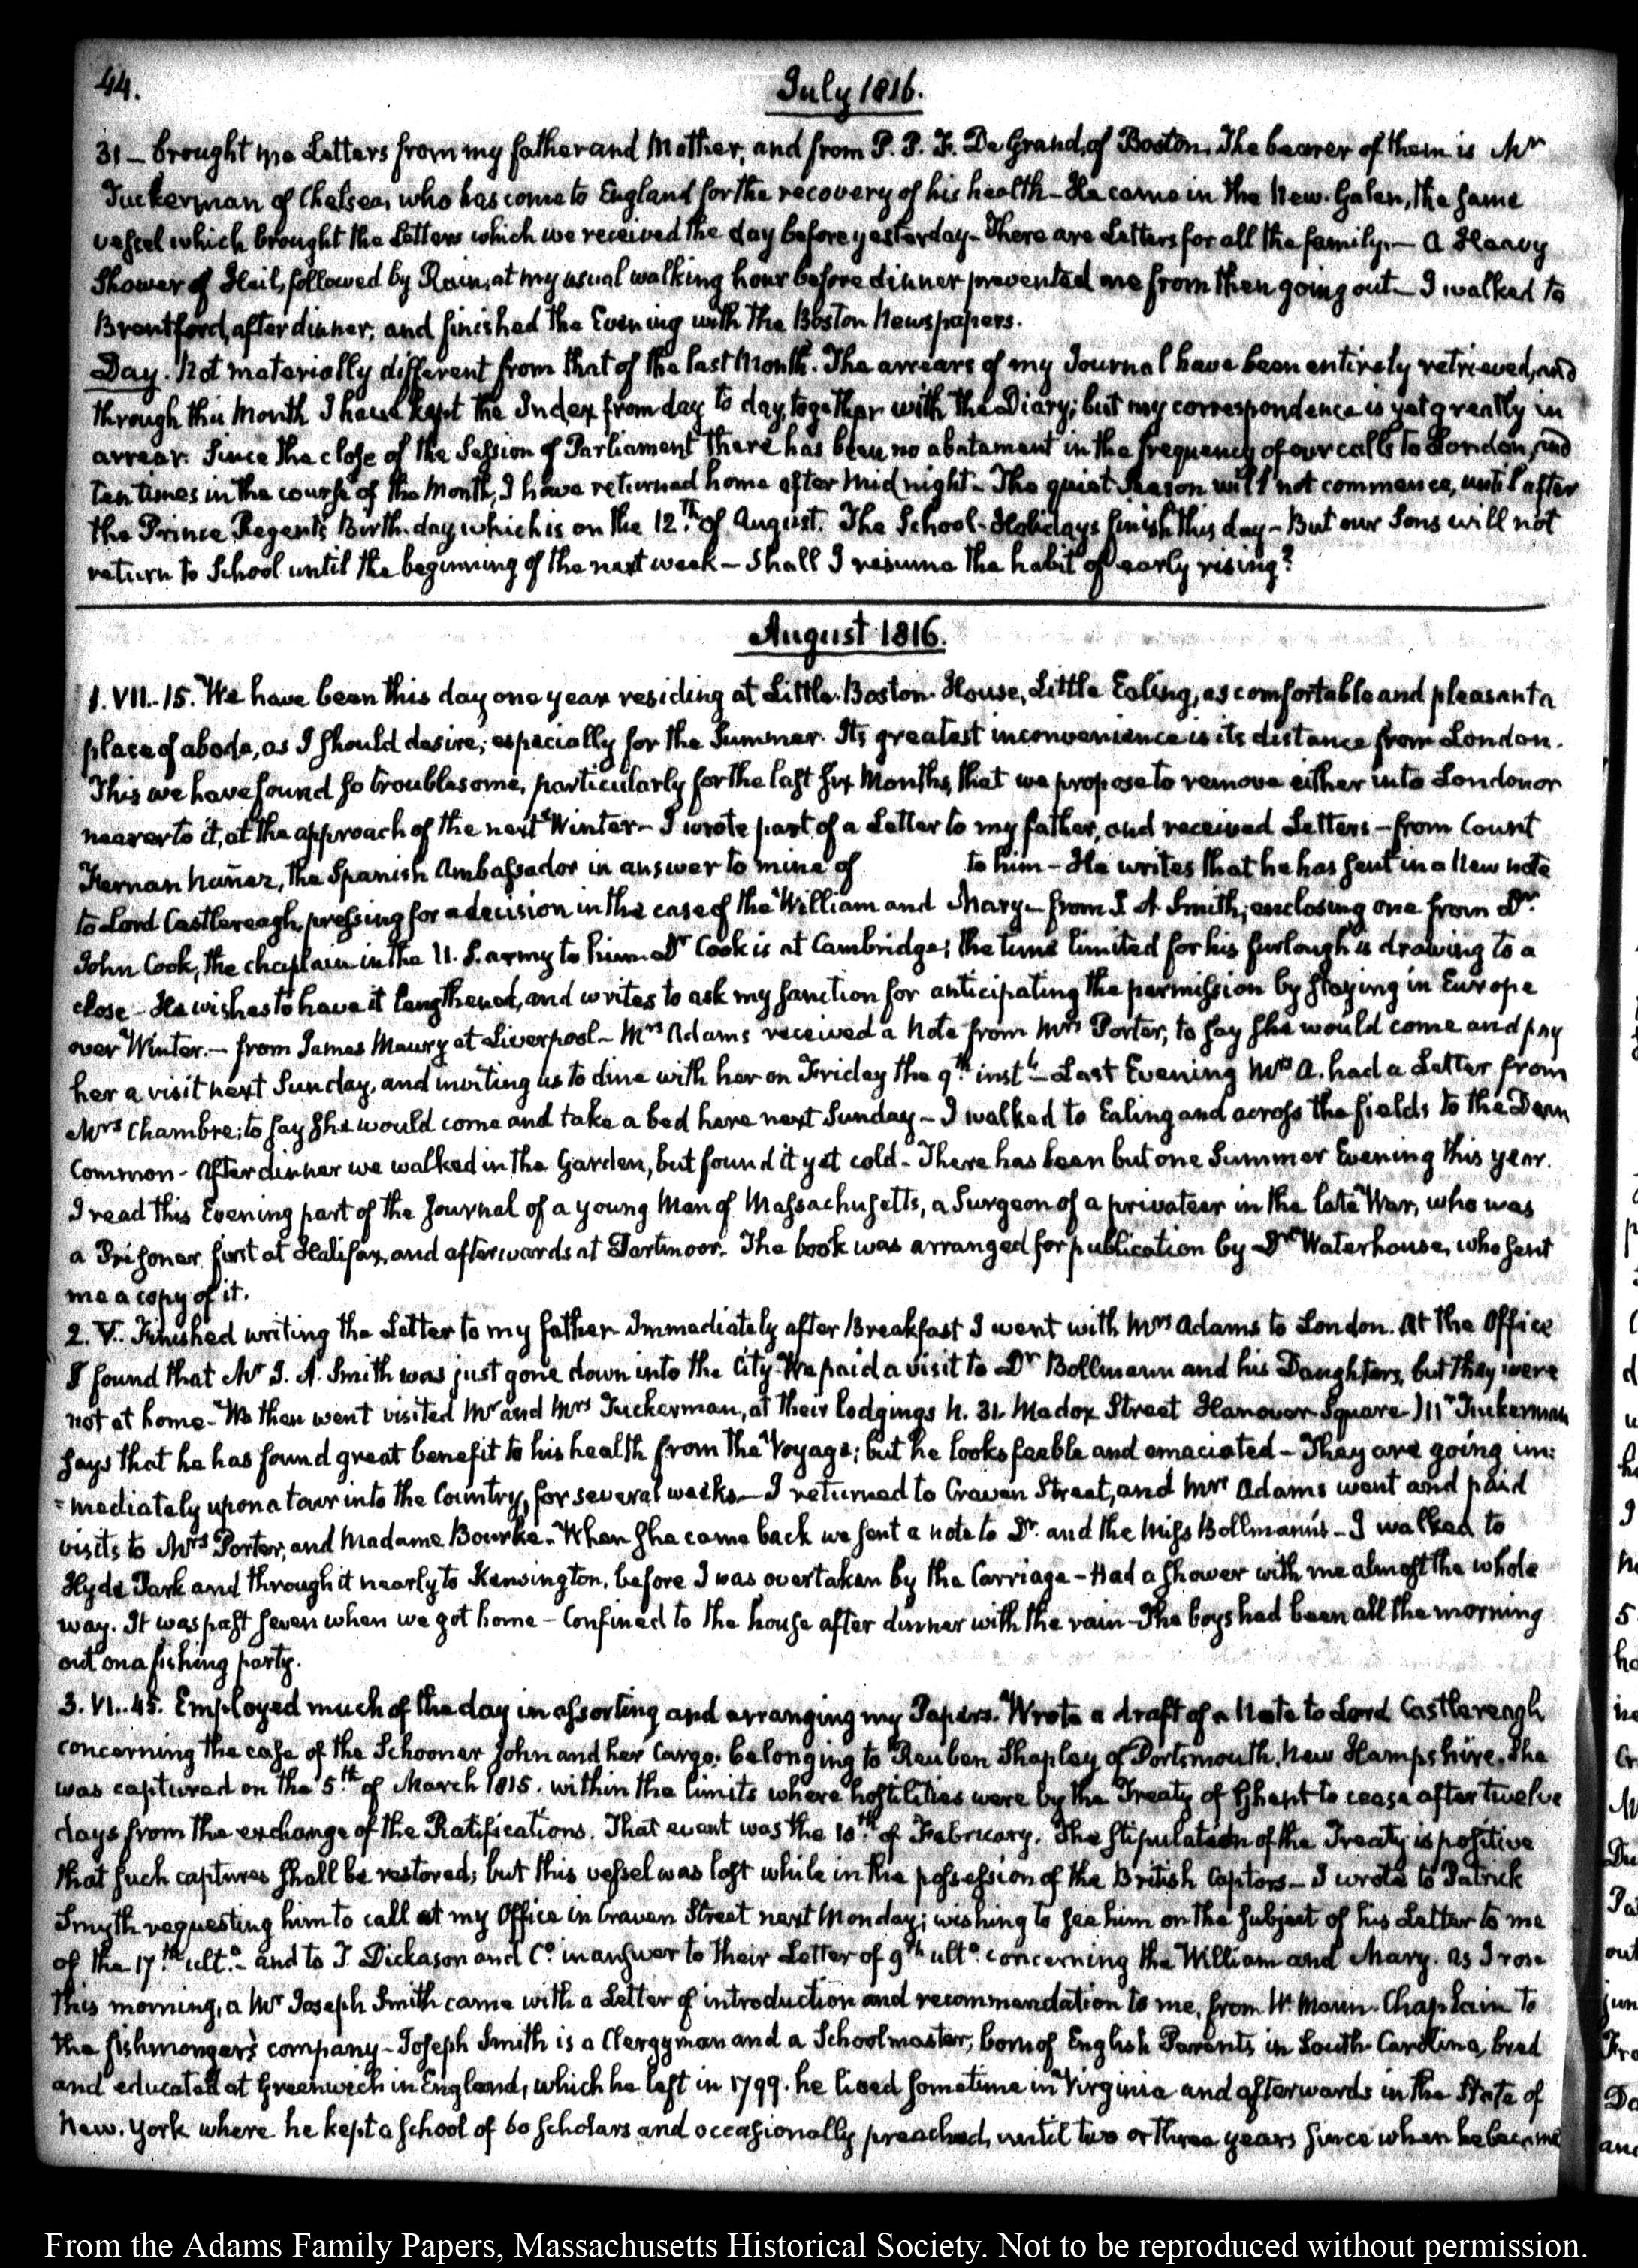 44.
July 1816.
31 – brought me Letters from my father and Mother, and from P. P. F. De Grand, of Boston. The bearer of them is Mr
Tuckerman of Chelsea, who has come to England for the recovery of his health – He came in the New-Galen, the same
vessel which brought the Letters which we received the day before yesterday – There are Letters for all the family. – A Heavy
Shower of Hail, followed by Rain, at my usual walking hour before dinner prevented me from then going out – I walked to
Brentford, after dinner; and finished the Evening with the Boston Newspapers.
Day. Not materially different from that of the last Month. The arrears of my Journal have been entirely retrieved, and
through this Month I have kept the Index from day to day, together with the Diary; but my correspondence is yet greatly in
arrear. Since the close of the Session of Parliament there has been no abatement in the frequency of our calls to London, and
ten times in the course of the Month, I have returned home after Midnight – The quiet Season will not commence, until after
the Prince Regent's Birth-day, which is on the 12.th of August. The School-Holidays finish this day – But our Sons will not
return to School until the beginning of the next week – Shall I resume the habit of early rising?
August 1816.
1. VII.-15. We have been this day one year residing at Little-Boston-House, Little Ealing, as comfortable and pleasant a
place of abode, as I should desire; especially for the Summer. Its greatest inconvenience is its distance from London.
This we have found so troublesome, particularly for the last six Months, that we propose to remove either into London or
nearer to it, at the approach of the next Winter – I wrote part of a Letter to my father, and received Letters – from Count
Fernan Nuñez, the Spanish Ambassador in answer to mine of to him – He writes that he has sent in a New note
to Lord Castlereagh, pressing for a decision in the case of the William and Mary – from J. A. Smith, enclosing one from Dr.
John Cook, the chaplain in the U. S. army to him. Dr Cook is at Cambridge; the time limited for his furlough is drawing to a
close – He wishes to have it lengthened, and writes to ask my sanction for anticipating the permission by staying in Europe
over Winter. – from James Maury at Liverpool – Mrs Adams received a Note from Mrs Porter, to say she would come and pay
her a visit next Sunday, and inviting us to dine with her on Friday the 9.th inst.t – Last Evening Mrs A. had a Letter from
Mrs Chambre; to say she would come and take a bed here next Sunday – I walked to Ealing and across the fields to the Dean
Common – After dinner we walked in the Garden, but found it yet cold – There has been but one Summer Evening this year.
I read this Evening part of the Journal of a young Man of Massachusetts, a Surgeon of a privateer in the late War, who was
a Prisoner first at Halifax, and afterwards at Dartmoor. The book was arranged for publication by Dr Waterhouse, who sent
me a copy of it.
2. V.. Finished writing the Letter to my father – Immediately after Breakfast I went with Mrs Adams to London. At the Office
I found that Mr J. A. Smith was just gone down into the City – We paid a visit to Dr Bollmann and his Daughters, but they were
not at home – We then went visited Mr and Mrs Tuckerman, at their lodgings N. 31. Madox Street Hanover Square – Mr Tuckerman
says that he has found great benefit to his health from the Voyage; but he looks feeble and emaciated – They are going im:
=mediately upon a tour into the Country, for several weeks – I returned to Craven Street, and Mrs Adams went and paid
visits to Mrs Porter, and Madame Bourke. When she came back we sent a note to Dr. and the Miss Bollmann's – I walked to
Hyde Park and through it nearly to Kensington, before I was overtaken by the Carriage – Had a shower with me almost the whole
way. It was past seven when we got home – Confined to the house after dinner with the rain – The boys had been all the morning
out on a fishing party.
3. VI..45. Employed much of the day in assorting and arranging my Papers. Wrote a draft of a Note to Lord Castlereagh
concerning the case of the Schooner John and her Cargo; belonging to Reuben Shapley of Portsmouth, New Hampshire. She
was captured on the 5.th of March 1815. within the limits where hostilities were by the Treaty of Ghent to cease after twelve
days from the exchange of the Ratifications. That event was the 18.th of February. The stipulation of the Treaty is positive
that such captures shall be restored; but this vessel was lost while in the possession of the British Captors – I wrote to Patrick
Smyth requesting him to call at my Office in Craven Street next Monday; wishing to see him on the subject of his Letter to me
of the 17.th ult.o – and to T. Dickason and Co. in answer to their Letter of 9th ulto. concerning the William and Mary. As I rose
this morning, a Mr Joseph Smith came with a Letter of introduction and recommendation to me, from W. Mann – Chaplain to
the fishmonger's company – Joseph Smith is a Clergyman and a Schoolmaster, born of English Parents in South-Carolina, bred
and educated at Greenwich in England, which he left in 1799. he lived sometime in Virginia and afterwards in the State of
New-York where he kept a school of 60 scholars and occasionally preached, until two or three years since when he became
From the Adams Family Papers, Massachusetts Historical Society. Not to be reproduced without permission.